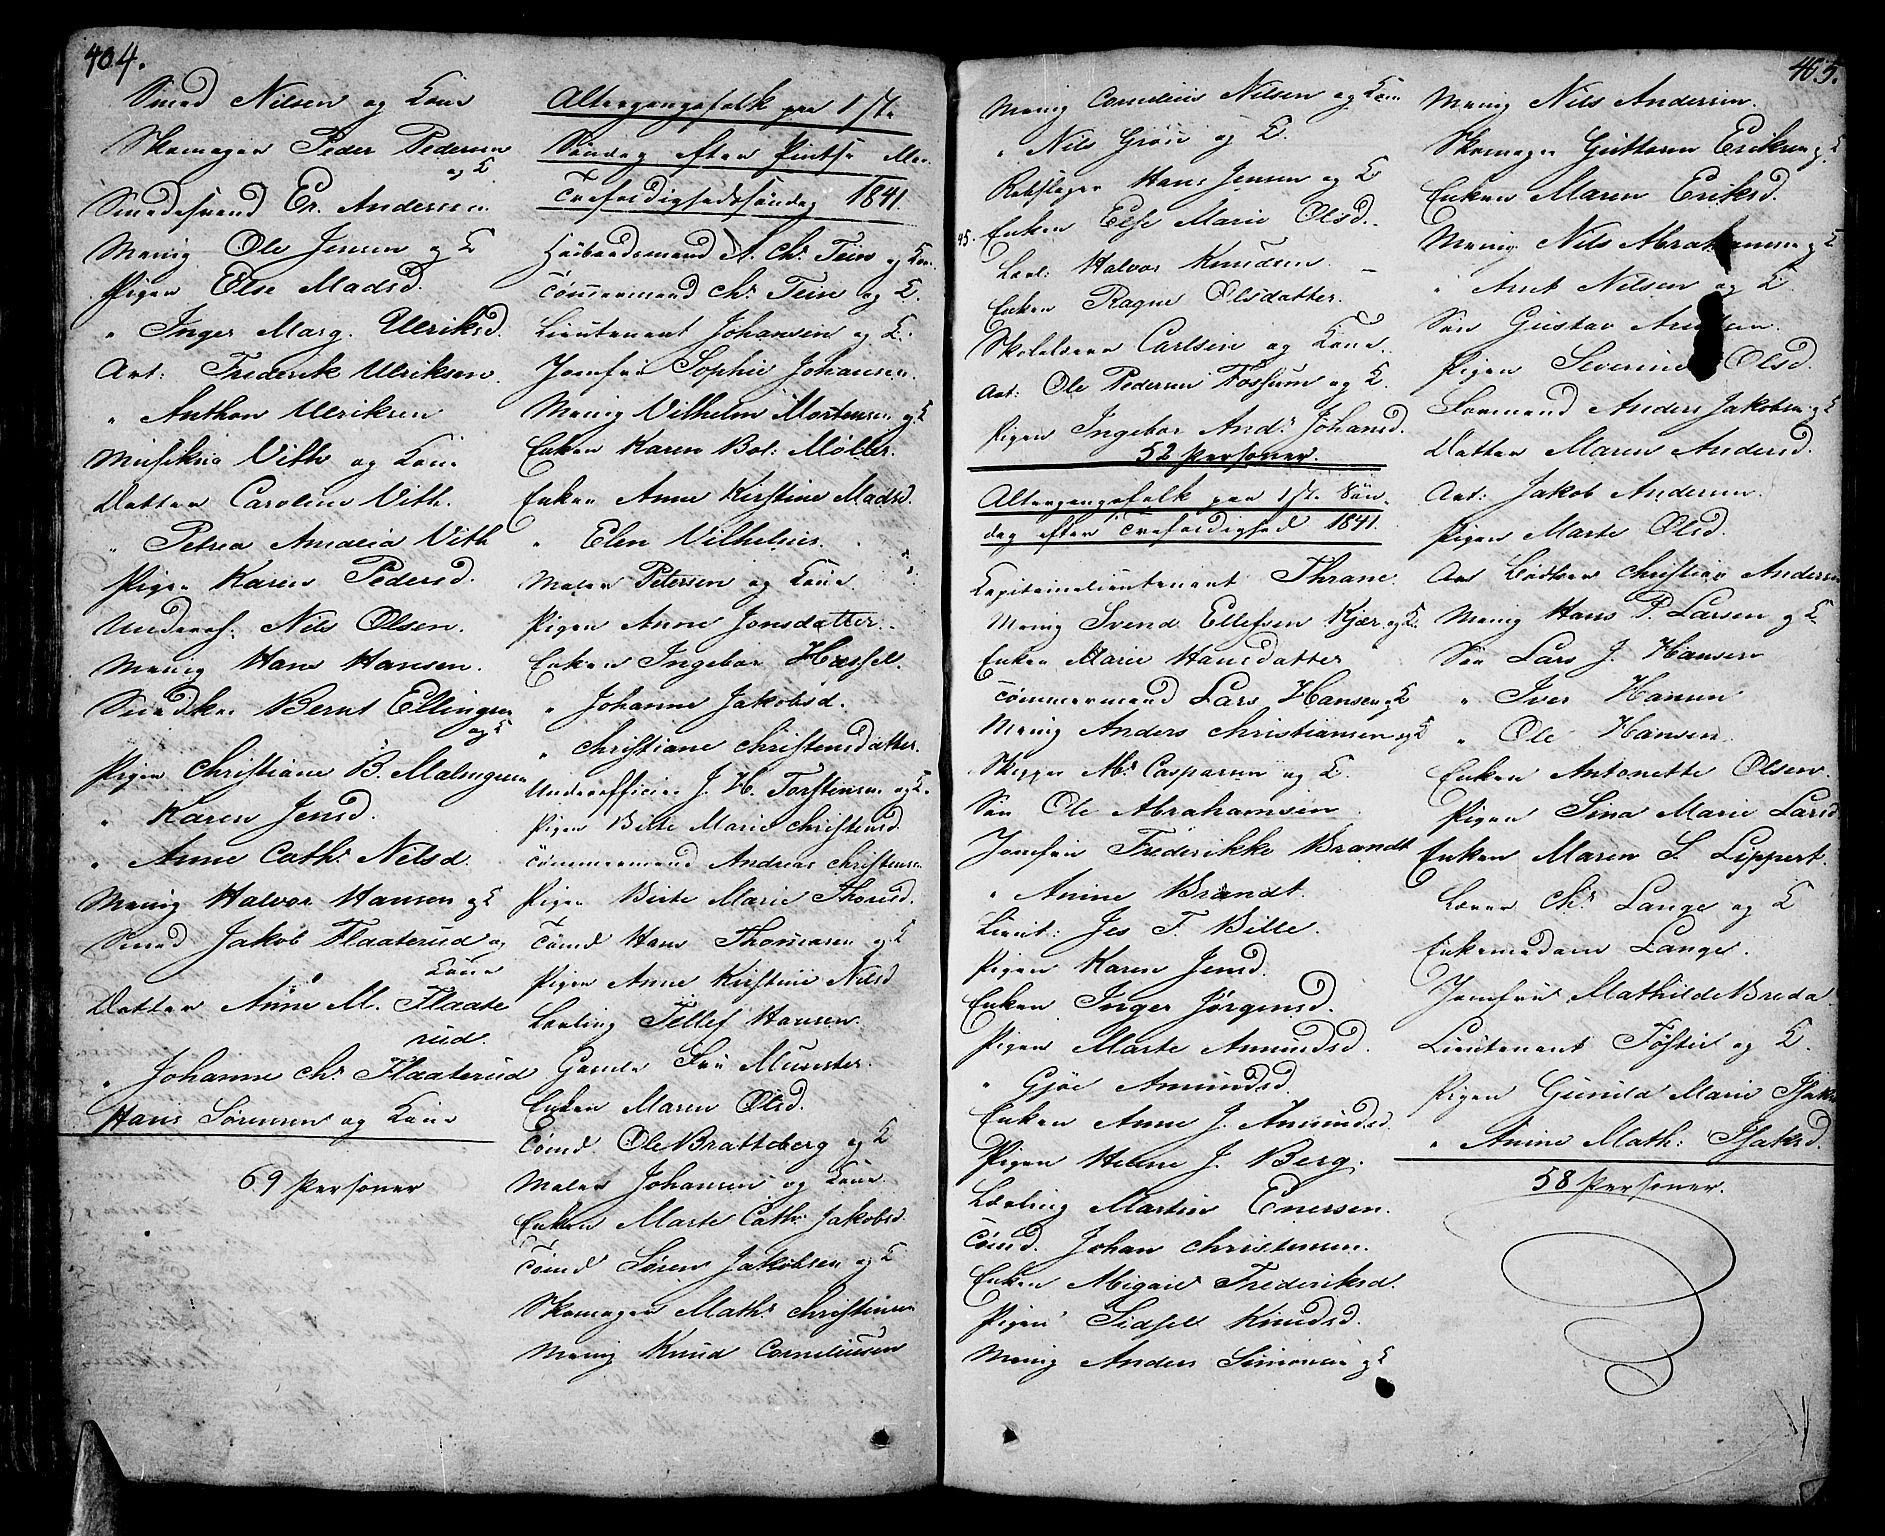 404.
Smed Nilsen og Kone
Skomager Peder Pedersen
og K
Smedesvend Er. Andersen
Menig Ole Jensen og K
Pigen Else Madsd.
" Inger Marg. Ulriksd.
Art: Frederik Ulriksen.
" Anthon Ulriksen
Musikus Vith og Kone
Datter Caroline Vith.
" Petrea Amalia Vith
Pigen Karen Pedersd.
Underof: Nils Olsen.
Menig Hans Hansen.
Bernt Ellingsen
og K
Pigen Christiane B. Malmgreen
" Karen Jensd.
" Anne Cath: Nilsd.
Menig Halvor Hansen og K
Smed Jakob Flaaterud og
Kone
Datter Anne M. Flaate
rud.
" Johanne Chr. Flaaterud
Hans Sørensen og Kone
69 Personer
Altergangsfolk paa 1ste
Søndag efter Pintse
Trefoldighedssøndag 1841.
Høibaadsmand A. Chr. Tein og Kone.
Tømmermand Chr. Tein og K.
Lieutenant Johansen og K.
Jomfru Sophie Johansen.
Menig Vilhelm Mortensen og K
Enken Karen Bol: Møller.
Enken Anne Kirstine Madsd.
" Elen Vilhelms.
Maler Petersen og Kone
Pigen Anne Jonsdatter.
Enken Ingebor Hassel.
" Johanne Jakobsd.
" Christiane Christensdatter.
Underofficier J. H. Torstensen og K.
Pigen Birte Marie Christensd.
Tømmermand Andreas Christensen
Pigen Birte Marie Thorsd.
Tømd Hans Thomasen og K
Pigen Anne Kirstine Nilsd
Lærling Tellef Hansen.
Gamle Fru Munster.
Enken Maren Olsd.
Tømd. Ole Bratteberg og K
Maler Johansen og Kone
Enken Marte Cath: Jakobsd.
Tømd Søren Jakobsen og K
Skomager Math: Christensen
Menig Knud Corneliussen
405.
Menig Cornelius Nilsen og Kone
" Nils Grose og K.
Rebslager Hans Jensen og K
45. Enken Else Marie Olsd.
Halvor Knudsen.
Enken Ragne Olsdatter.
Skolelærer Carlsen og Kone.
Art: Ole Pedersen Fossum og K.
Pigen Ingebor And: Johansd.
52 Personer.
Altergangsfolk paa 1ste Søn-
dag efter Trefoldighed 1841.
Kapitainlieutenant Thrane.
Menig Svend Ellefsen Kjær og K.
Enken Marie Hansdatter
Tømmermand Lars Hansen og K
Menig Anders Christiansen og K
Skipper Ab: Caspersen og K.
Søn Ole Abrahamsen
Jomfru Frederikke Brandt
" Anine Brandt.
Lieut: Jes T. Bille.
Pigen Karen Jensd.
Enken Inger Jørgensd.
Pigen Marte Amundsd.
" Gjøe Amundsd.
Enken Anne J. Amundsd.
Pigen Helene J. Berg.
Lærling Martin Enersen.
Tømd. Johan Christensen.
Enken Abigael Frederiksd.
Pigen Sidsel Knudsd.
Menig Anders Simonsen og K
Menig Nils Andersen.
Skomager Guttorm Eriksen og K
Enken Maren Eriksd.
Menig Nils Abrahamsen og K
" Arnt Nilsen og K
Søn Gustav Arntsen.
Pigen Severine Olsd.
Formand Anders Jakobsen og K
Datter Maren Andersd.
Art: Jakob Andersen.
Pigen Marte Olsd.
Art Christian Andersen
Menig Hans P. Larsen og K
Søn Lars J. Hansen
" Iver Hansen
" Ole Hansen.
Enken Antonette Olsen.
Pigen Sina Marie Larsd
Enken Maren S. Lippert.
Lærer Chr. Lange og K
Enkemadam Lange.
Jomfru Mathilde Breda
Lieutenant Foster og K.
Pigen Gunild Marie Isaks
" Anine Math: Isaksd.
58 Personer.